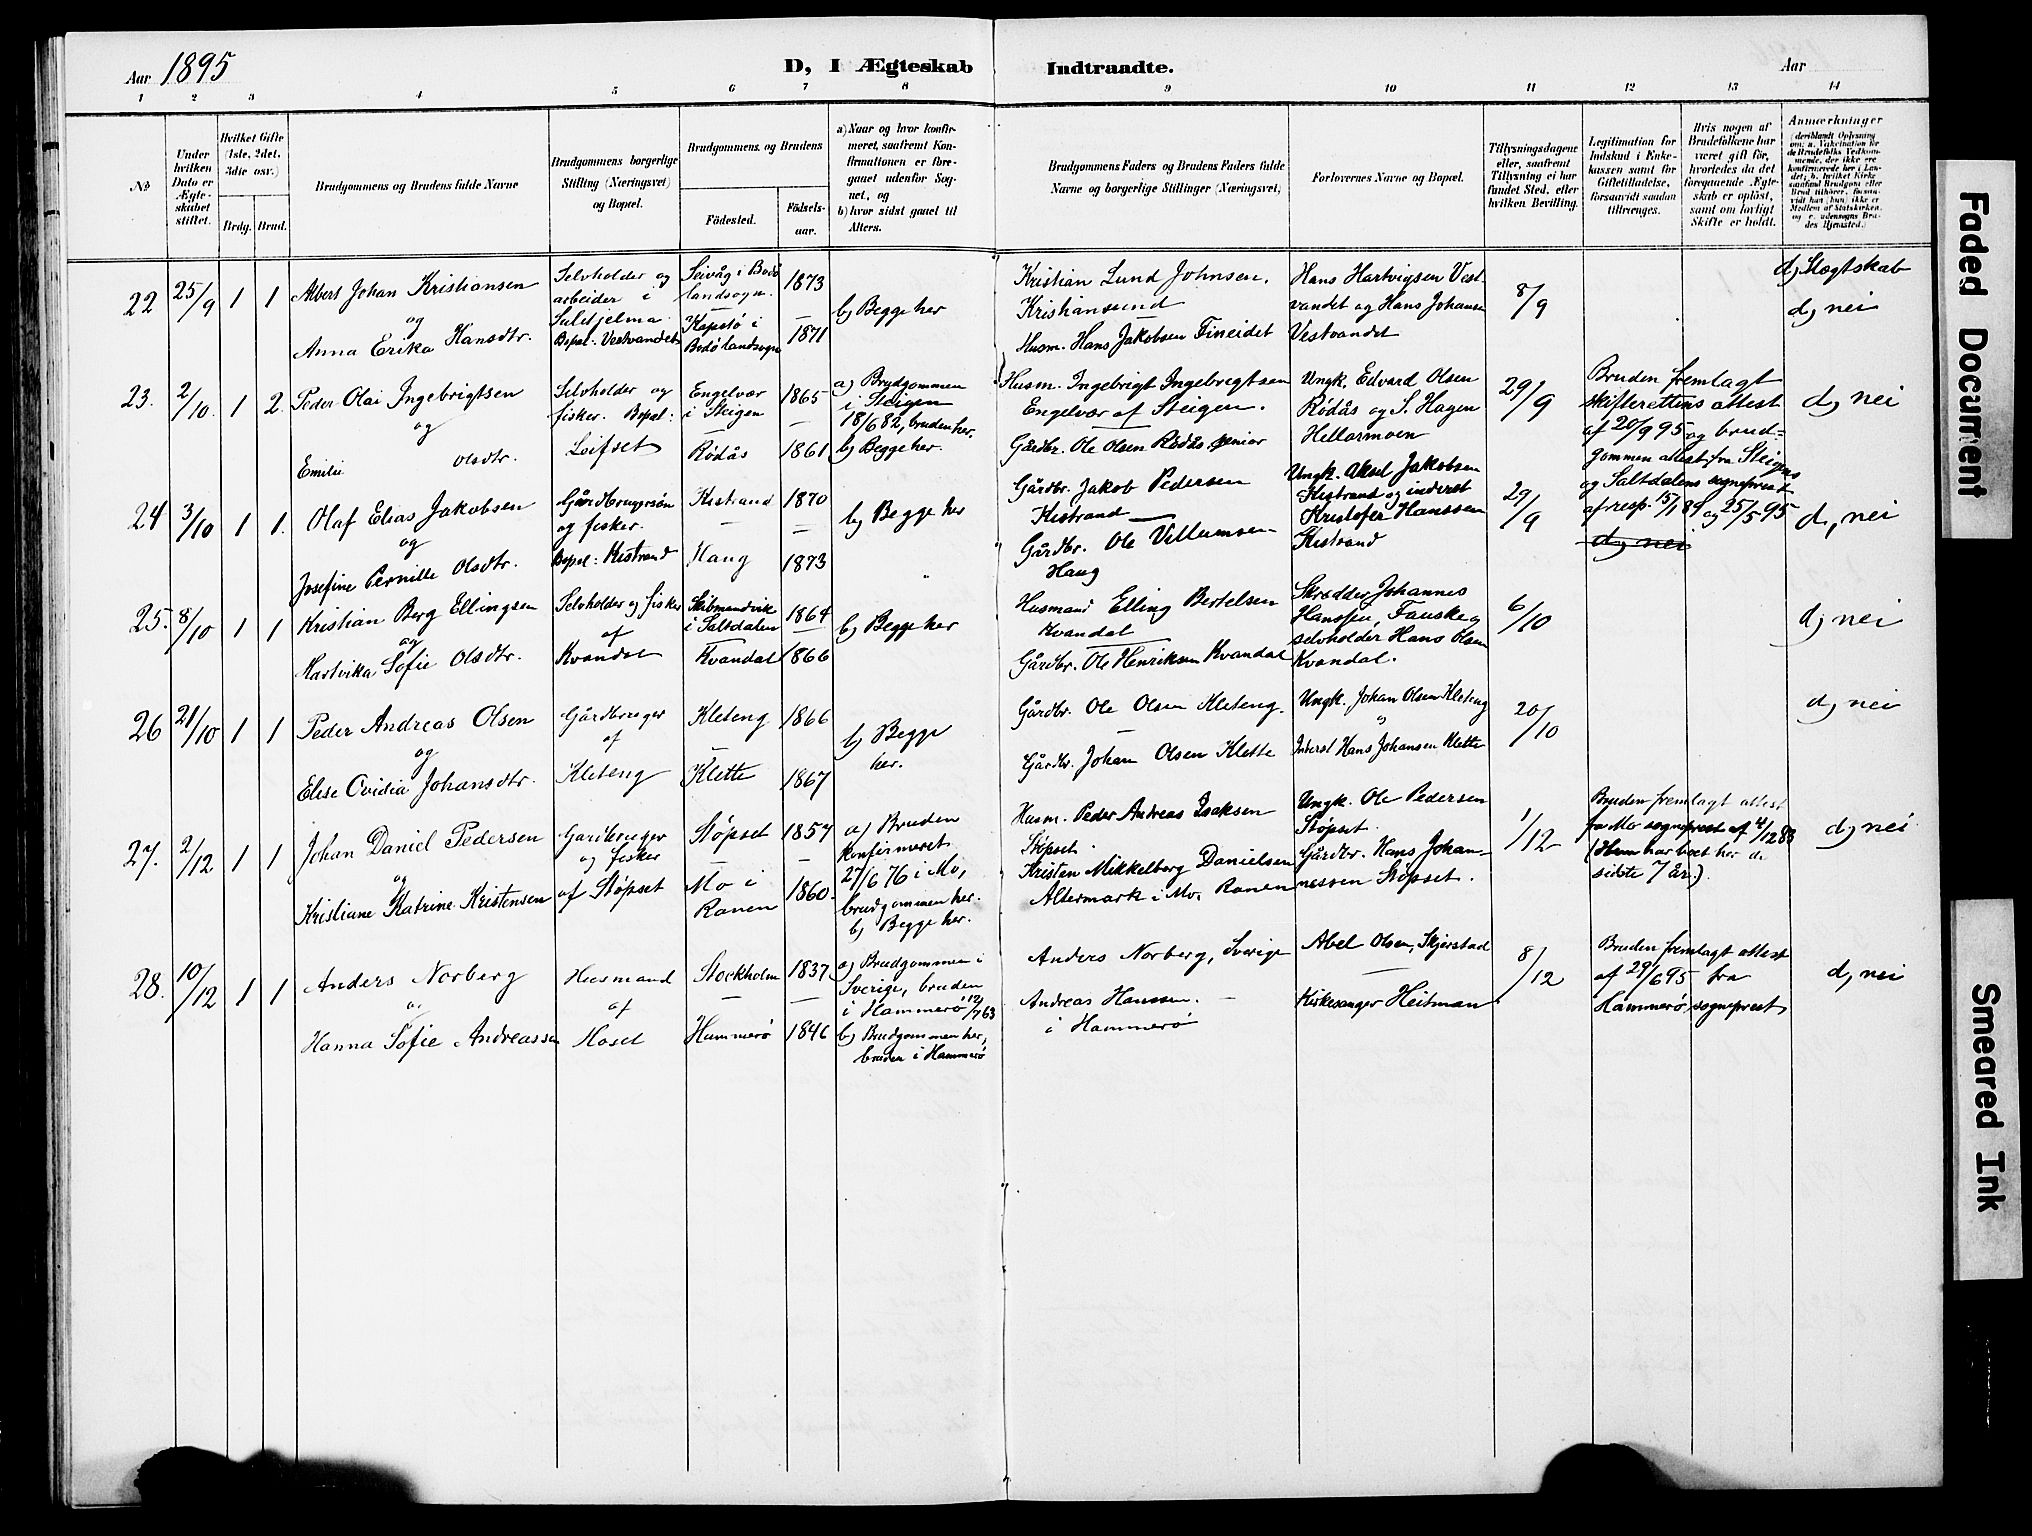 Aar 1895
D, I Ægteskab Indtraadte.
Aar
1 2 3 4 5 6 7 8 9 10 11 12 13 14
No
Under hvilken Dato er Ægteskabet stiftet.
Hvilket Gifte (1ste, 2det, 3die osv.)
Brdg. Brud.
Brudgommens og Brudens fulde Navne
Brudgommens borgerlige Stilling (Næringsvei) og Bopæl.
Brudgommens og Brudens
Fødested.
Fødselsaar.
a) Naar og hvor konfirmeret, saafremt Konfirmationen er foregaaet udenfor Sognet, og
b) hvor sidst gaaet til Alters.
Brudgommens Faders og Brudens Faders fulde Navne og borgerlige Stillinger (Næringsvei)
Forlovernes Navne og Bopæl.
Tillysningsdagene eller, saafremt Tillysning ei har fundet Sted, efter hvilken Bevilling.
Legitimation for Indskud i Enkekassen samt for Giftetilladelse, forsaavidt saadan tiltrænges.
Hvis nogen af Brudefolkene har været gift før, hvorledes da det foregaaende Ægteskab er opløst, samt om lovligt Skifte er holdt.
Anmærkninger
22 25/9 1 1
Albert Johan Kristiansen
og
Anna Erika Hansdtr.
Selvholder og
arbeider i
Sulitjelma
Bopæl. Vestvandet
Seivåg i Bodø
landsogn.
Kapstø i
Bodø landsogn
1873
1871
b) Begge her
Kristian Lund Johnsen,
Kristiansund
Husm. Hans Jakobsen Fineidet
Hans Hartvigsen Vest-
vandet og Hans Johansen
Vestvandet
8/9
d) Slægtskab
d) nei
23. 2/10. 1 2.
Peder Olai Ingebrigtsen
og
Emilie Olsdtr.
Selvholder og
fisker. Bopæl:
Leifset
Engelvær
i Steigen
Rødås
1865
1861
a) Brudgommen
i Steigen
18/6 82, bruden her.
b) Begge her.
Husm. Ingebrigt Ingebrigtsen
Engelvær af Steigen.
Gårdbr. Ole Olsen Rødås senior
Ungk. Edvard Olsen
Rødås og S. Hagen
Hellarmoen
29/9
Bruden fremlagt
skifterettens attest
af 20/9 95 og brud=
gommen attest fra Steigens
og Saltdalens sogneprest
af resp. 15/1 89 og 25/5 95
d) nei
24 3/10 1 1.
Olaf Elias Jakobsen
og
Josefine Pernille Olsdtr.
Gårdbrugersøn
og fisker.
Bopæl: Kistrand
Kistrand
Haug
1870
1873
b) Begge her
Gårdbr. Jakob Pedersen
Kistrand
Gårdbr. Ole Villumsen
Haug
Ungk. Aksel Jakobsen
Kistrand og inderst
Kristofer Hanssen
Kistrand
29/9
d) nei
d, nei
25. 8/10 1 1
Kristian Berg Ellingsen
og
Hartvika Sofie Olsdtr.
Selvholder og fisker
af
Kvandal
Skibmandvik
i Saltdalen
Kvandal
1864
1866
b) Begge her
Husmand Elling Bertelsen
Kvandal
Gårdbr. Ole Henriksen Kvandal
Skrædder Johannes
Hanssen, Fauske og
selvholder Hans Olsen
Kvandal.
6/10
d) nei
26 21/10 1 1
Peder Andreas Olsen
og
Elise Ovidia Johansdtr.
Gårdbruger
af
Kleteng
Kleteng
Klette
1866
1867
b) Begge
her.
Gårdbr. Ole Olsen Kleteng.
Gårdbr. Johan Olsen Klette
Ungk. Johan Olsen Kleteng
Inderst Hans Johansen Klette
20/10
d) nei
27. 2/12 1 1
Johan Daniel Pedersen
og
Kristiane Katrine Kristensen
Gardbruger
og fisker
af Støpset
Støpset
Mo i
Ranen
1857
1860.
a) Bruden
konfirmeret
27/6 76 i Mo,
brudgommen her.
b) Begge her.
Husm. Peder Andreas Isaksen
Støpset.
Kristen Mikkelborg Danielsen
Altermark i Mo, Ranen
Ungk. Ole Pedersen
Støpset.
Gårdbr. Hans Johan-
nessen Støpset.
1/12
Bruden fremlagt attest
fra Mo sogneprest af 4/12 88
(Hun har boet her de
sidste 7 år.).
d) nei
28. 10/12 1 1
Anders Norberg
og
Hanna Sofie Andreassen
Husmand
af
Moset
Stockholm
Hammerø
1837
1846
a) Brudgommen i
Sverige, bruden
i Hammerø 12/7 63
b) Brudgommen her,
bruden i Hammerø
Anders Norberg, Sverige
Andreas Hanssen.
i Hammerø
Abel Olsen, Skjerstad
Kirkesanger Heitman
8/12
Bruden fremlagt attest
af 29/6 95 fra
Hammerø sogneprest
d, nei
Faded Document
Smeared Ink